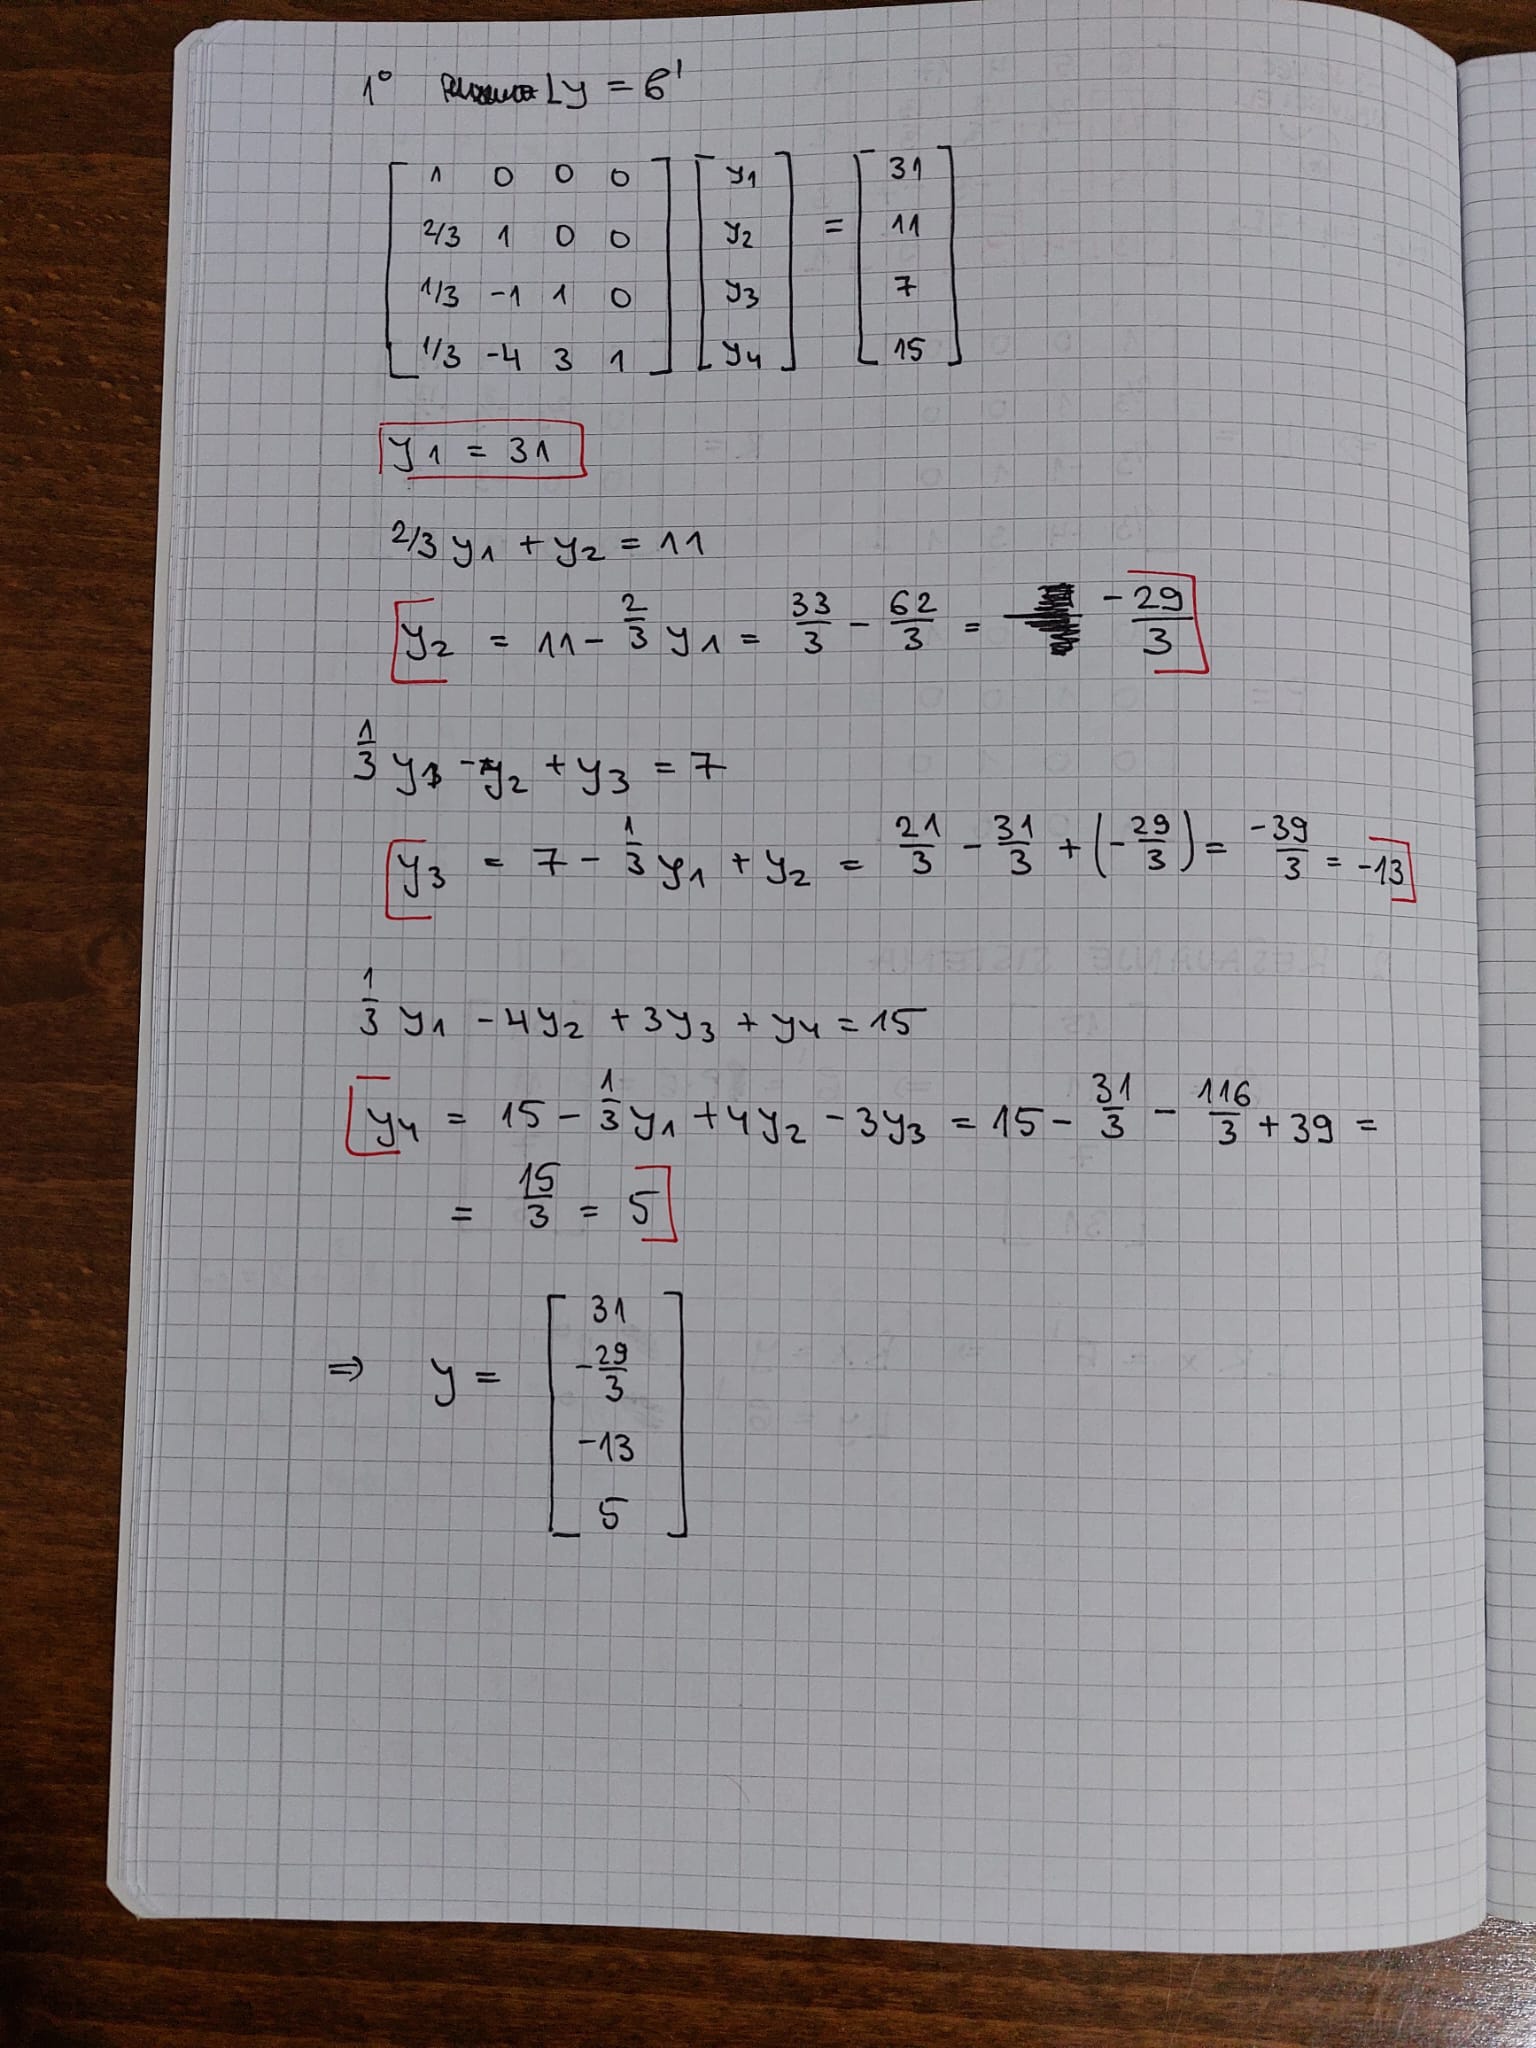 1° Ly = b'
[ 1 0 0 0 ] [ y1 ] = [ 31 ]
[ 2/3 1 0 0 ] [ y2 ] [ 11 ]
[ 1/3 -1 1 0 ] [ y3 ] [ 7 ]
[ 1/3 -4 3 1 ] [ y4 ] [ 15 ]
y1 = 31
2/3 y1 + y2 = 11
y2 = 11 - 2/3 y1 = 33/3 - 62/3 = -29/3
1/3 y1 - y2 + y3 = 7
y3 = 7 - 1/3 y1 + y2 = 21/3 - 31/3 + (-29/3) = -39/3 = -13
1/3 y1 - 4y2 + 3y3 + y4 = 15
y4 = 15 - 1/3 y1 + 4y2 - 3y3 = 15 - 31/3 - 116/3 + 39 =
= 15/3 = 5
⇒ y = [ 31
-29/3
-13
5 ]